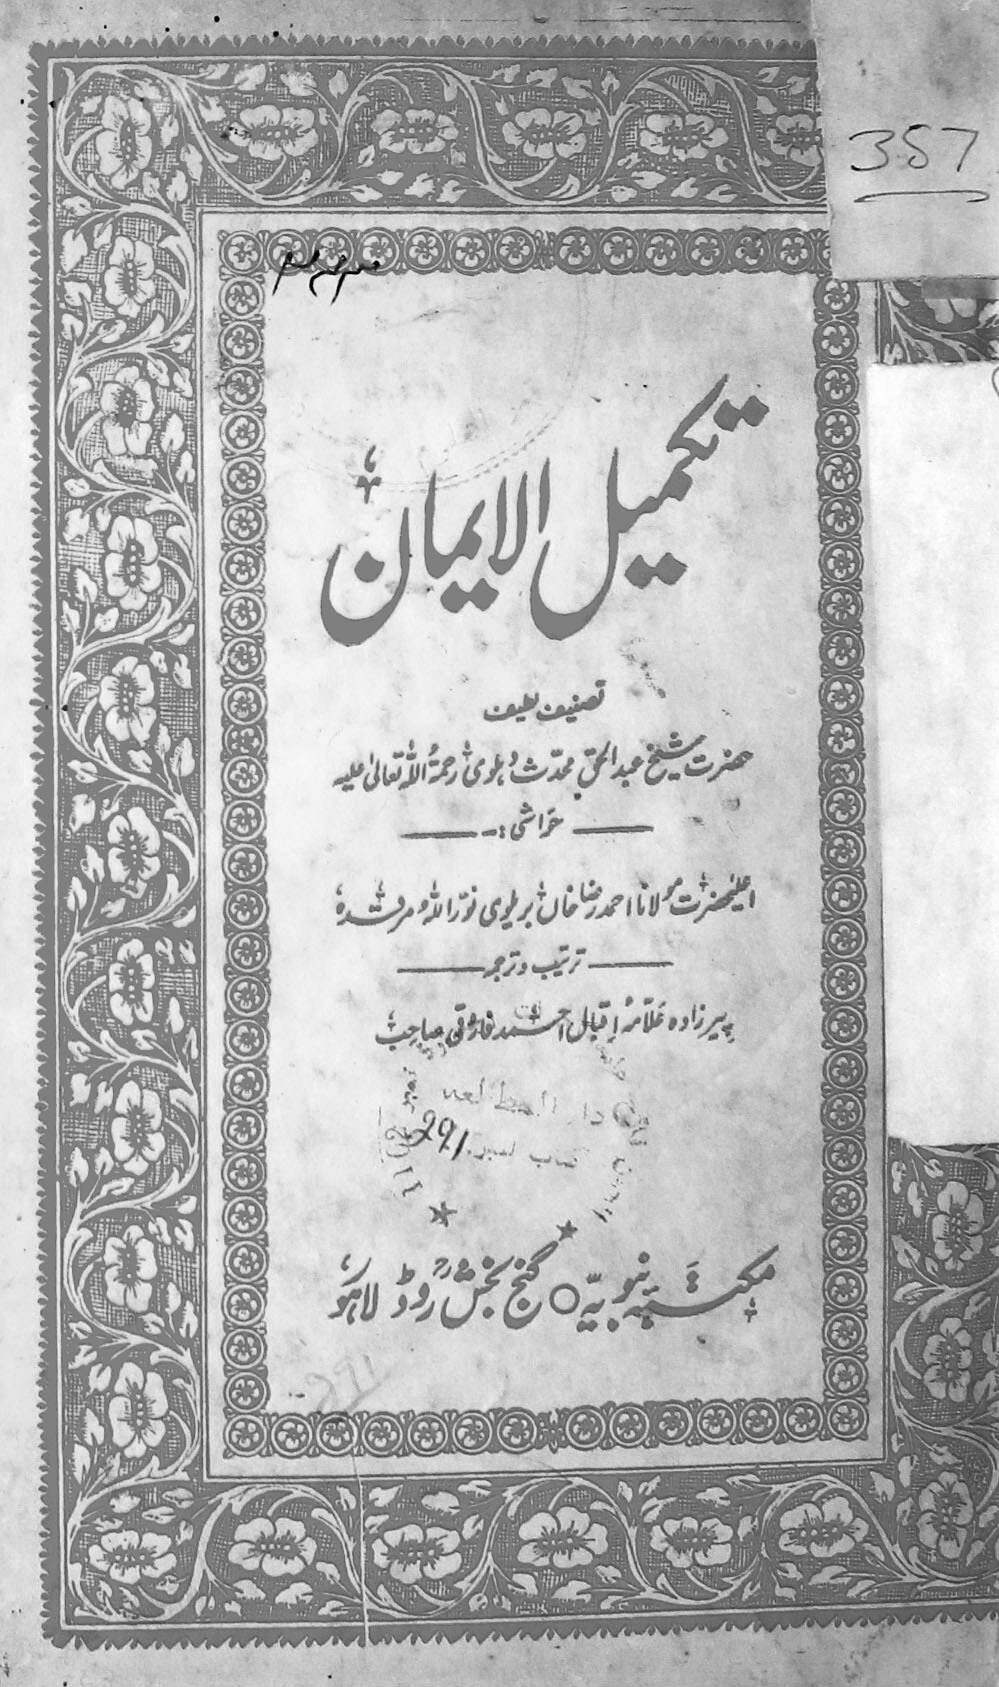 357
تکمیل الایمان
تصنیف لطیف
حضرت شیخ عبدالحق محدّث دہلوی رحمۃ اللہ تعالیٰ علیہ
حواشی :-
اعلیٰحضرت مولانا احمد رضا خاں بریلوی نوّر اللہ مرقدہٗ
ترتیب و ترجمہ
پیرزادہ علّامہ اقبال احمد فاروقی صاحب
291
مکتبہ نبویہ ○ گنج بخش روڈ لاہور
291